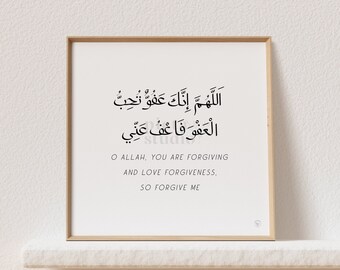 اَللّٰهُمَّ إِنَّكَ عَفُوٌّ تُحِبُّ
الْعَفْوَ فَاعْفُ عَنِّي
O ALLAH, YOU ARE FORGIVING
AND LOVE FORGIVENESS,
SO FORGIVE ME